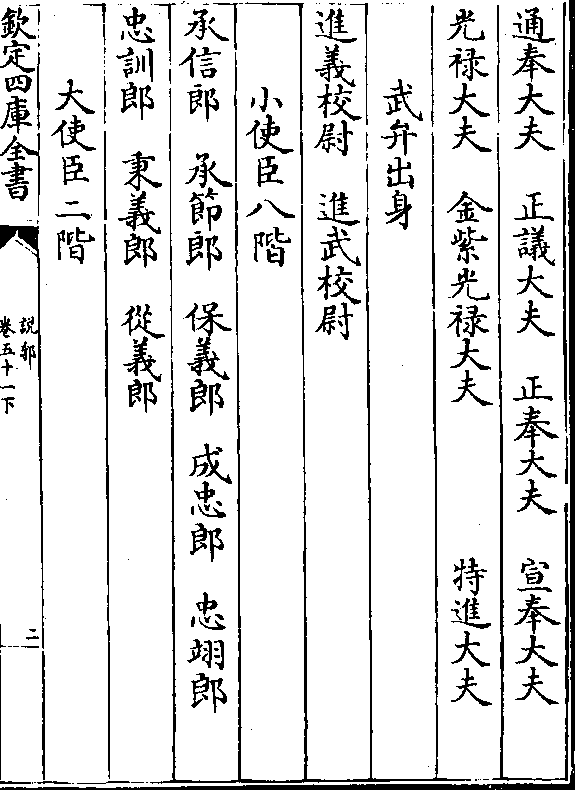 通奉大夫 正議大夫 正奉大夫 宣奉大夫
光禄大夫 金紫光禄大夫 特進大夫
武弁出身
進義校尉 進武校尉
小使臣八階
承信郎 承節郎 保義郎 成忠郎 忠翊郎
忠訓郎 秉義郎 從義郎
大使臣二階
欽定四庫全書
說郛
卷五十一下
二